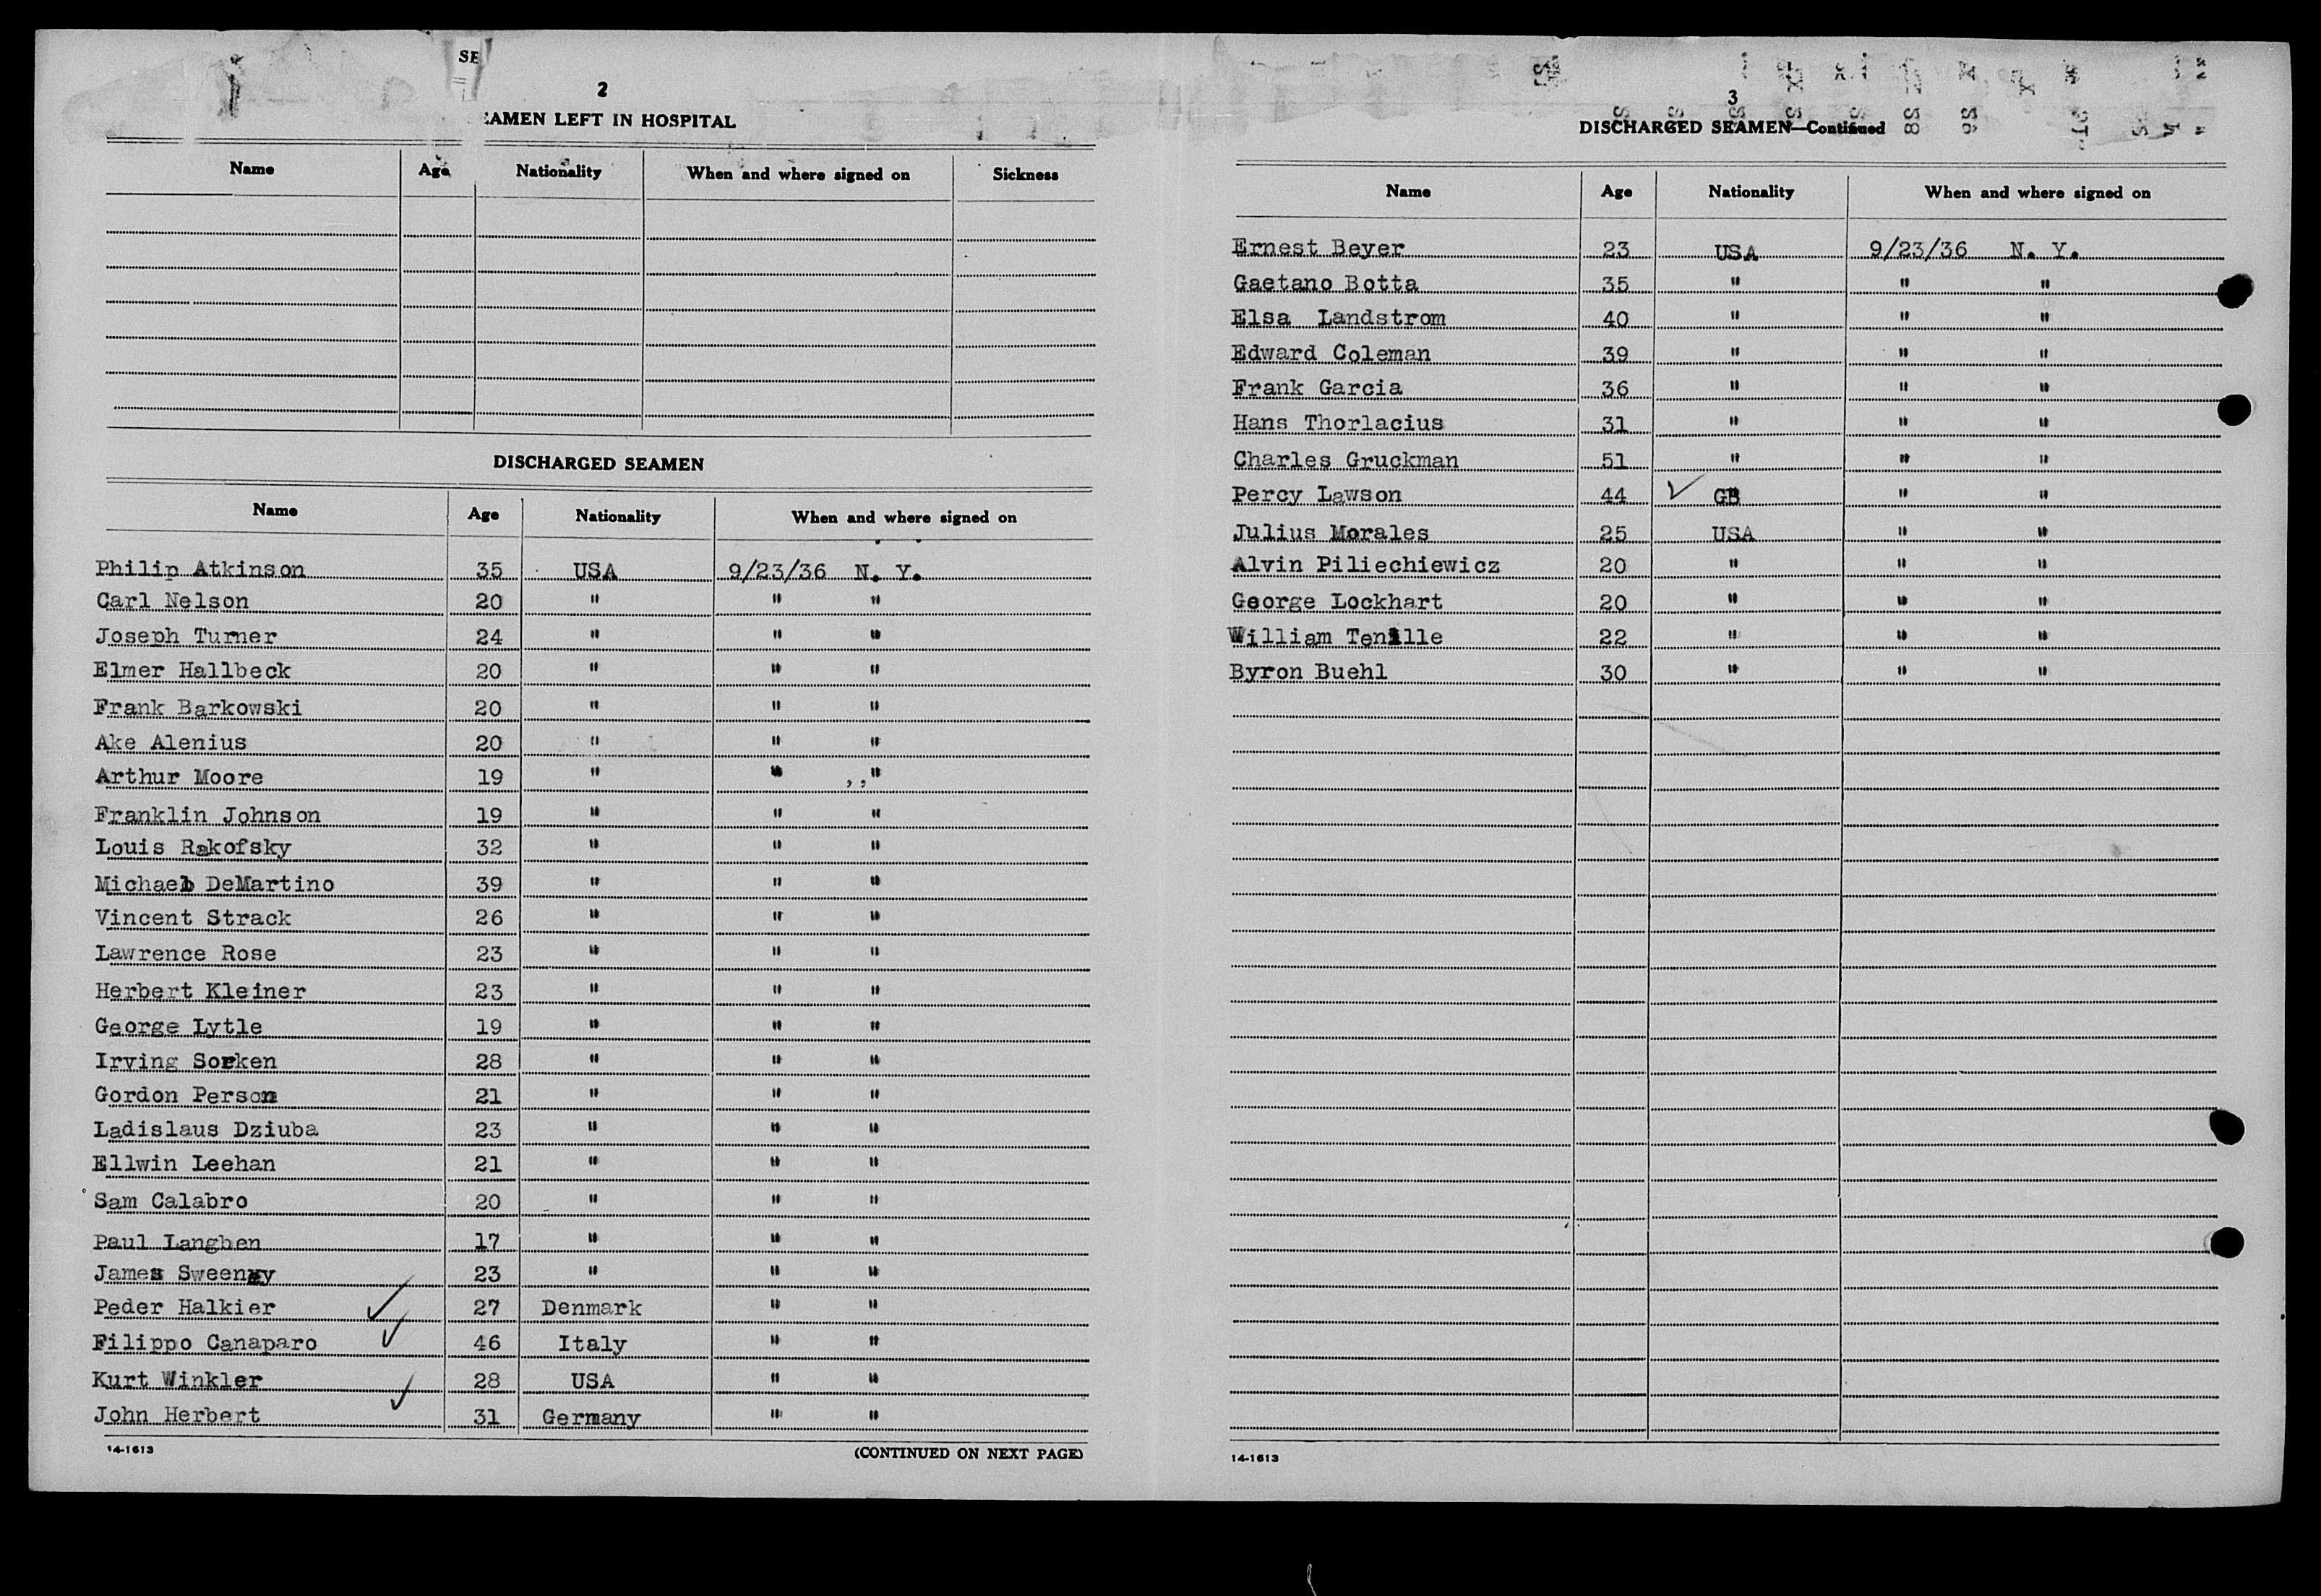 SE
2
EAMEN LEFT IN HOSPITAL
Name Age Nationality When and where signed on Sickness
DISCHARGED SEAMEN
Name Age Nationality When and where signed on
Philip Atkinson 35 USA 9/23/36 N. Y.
Carl Nelson 20 " " "
Joseph Turner 24 " " "
Elmer Hallbeck 20 " " "
Frank Barkowski 20 " " "
Ake Alenius 20 " " "
Arthur Moore 19 " " ,,"
Franklin Johnson 19 " " "
Louis Rakofsky 32 " " "
Michael DeMartino 39 " " "
Vincent Strack 26 " " "
Lawrence Rose 23 " " "
Herbert Kleiner 23 " " "
George Lytle 19 " " "
Irving Sorken 28 " " "
Gordon Person 21 " " "
Ladislaus Dziuba 23 " " "
Ellwin Leehan 21 " " "
Sam Calabro 20 " " "
Paul Langben 17 " " "
James Sweeney 23 " " "
Peder Halkier ✓ 27 Denmark " "
Filippo Canaparo ✓ 46 Italy " "
Kurt Winkler 28 USA " "
John Herbert ✓ 31 Germany " "
14-1613 (CONTINUED ON NEXT PAGE)
3
DISCHARGED SEAMEN—Continued
Name Age Nationality When and where signed on
Ernest Beyer 23 USA 9/23/36 N. Y.
Gaetano Botta 35 " " "
Elsa Landstrom 40 " " "
Edward Coleman 39 " " "
Frank Garcia 36 " " "
Hans Thorlacius 31 " " "
Charles Gruckman 51 " " "
Percy Lawson 44 ✓ GB " "
Julius Morales 25 USA " "
Alvin Piliechiewicz 20 " " "
George Lockhart 20 " " "
William Tenille 22 " " "
Byron Buehl 30 " " "
14-1613